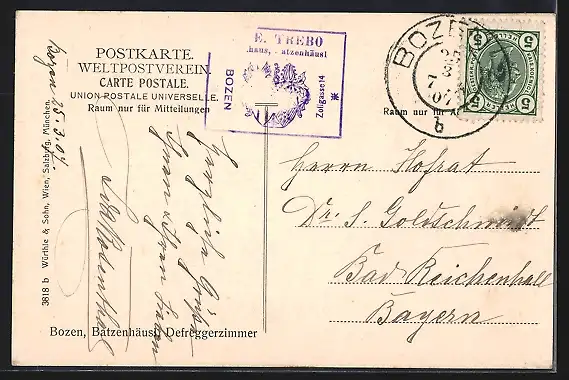 POSTKARTE.
WELTPOSTVEREIN.
CARTE POSTALE.
UNION POSTALE UNIVERSELLE.
Raum nur für Mitteilungen
E. TREBO
haus, atzenhäusl
BOZEN
Zollgasse 14
BOZEN
25
3
7
07
b
5
5
5
5
Raum nur für A
Bozen 25.3.07.
Herzliche Grüße
Herrn Hofrat
Dr. S. Goldschmidt
Bad Reichenhall
Bayern
3818 b Würthle & Sohn, Wien, Salzburg, München.
Bozen, Batzenhäusl, Defreggerzimmer